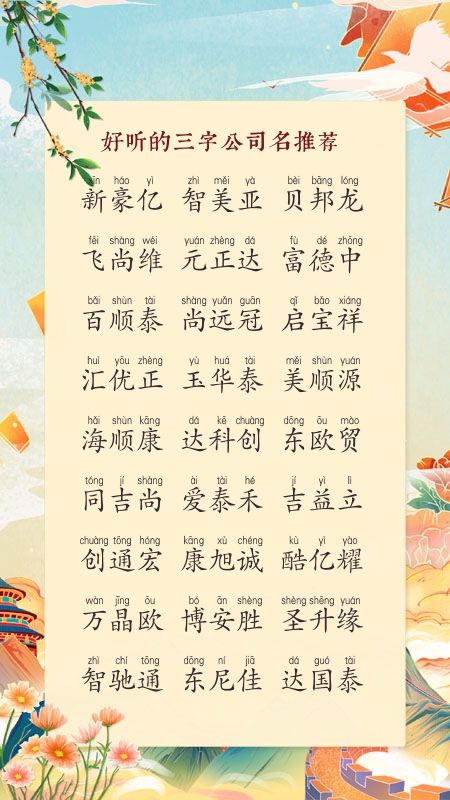 好听的三字公司名推荐
xīn háo yì zhì měi yà bèi bāng lóng
新豪亿 智美亚 贝邦龙
fēi shàng wéi yuán zhèng dá fù dé zhōng
飞尚维 元正达 富德中
bǎi shùn tài shàng yuǎn guān qǐ bǎo xiáng
百顺泰 尚远冠 启宝祥
huì yōu zhèng yù huá tài měi shùn yuán
汇优正 玉华泰 美顺源
hǎi shùn kāng dá kē chuàng dōng ōu mào
海顺康 达科创 东欧贸
tóng jí shàng ài tài hé jí yì lì
同吉尚 爱泰禾 吉益立
chuàng tōng hóng kāng xù chéng kù yì yào
创通宏 康旭诚 酷亿耀
wàn jīng ōu bó ān shèng shèng shēng yuán
万晶欧 博安胜 圣升缘
zhì chí tōng dōng ní jiā dá guó tài
智驰通 东尼佳 达国泰